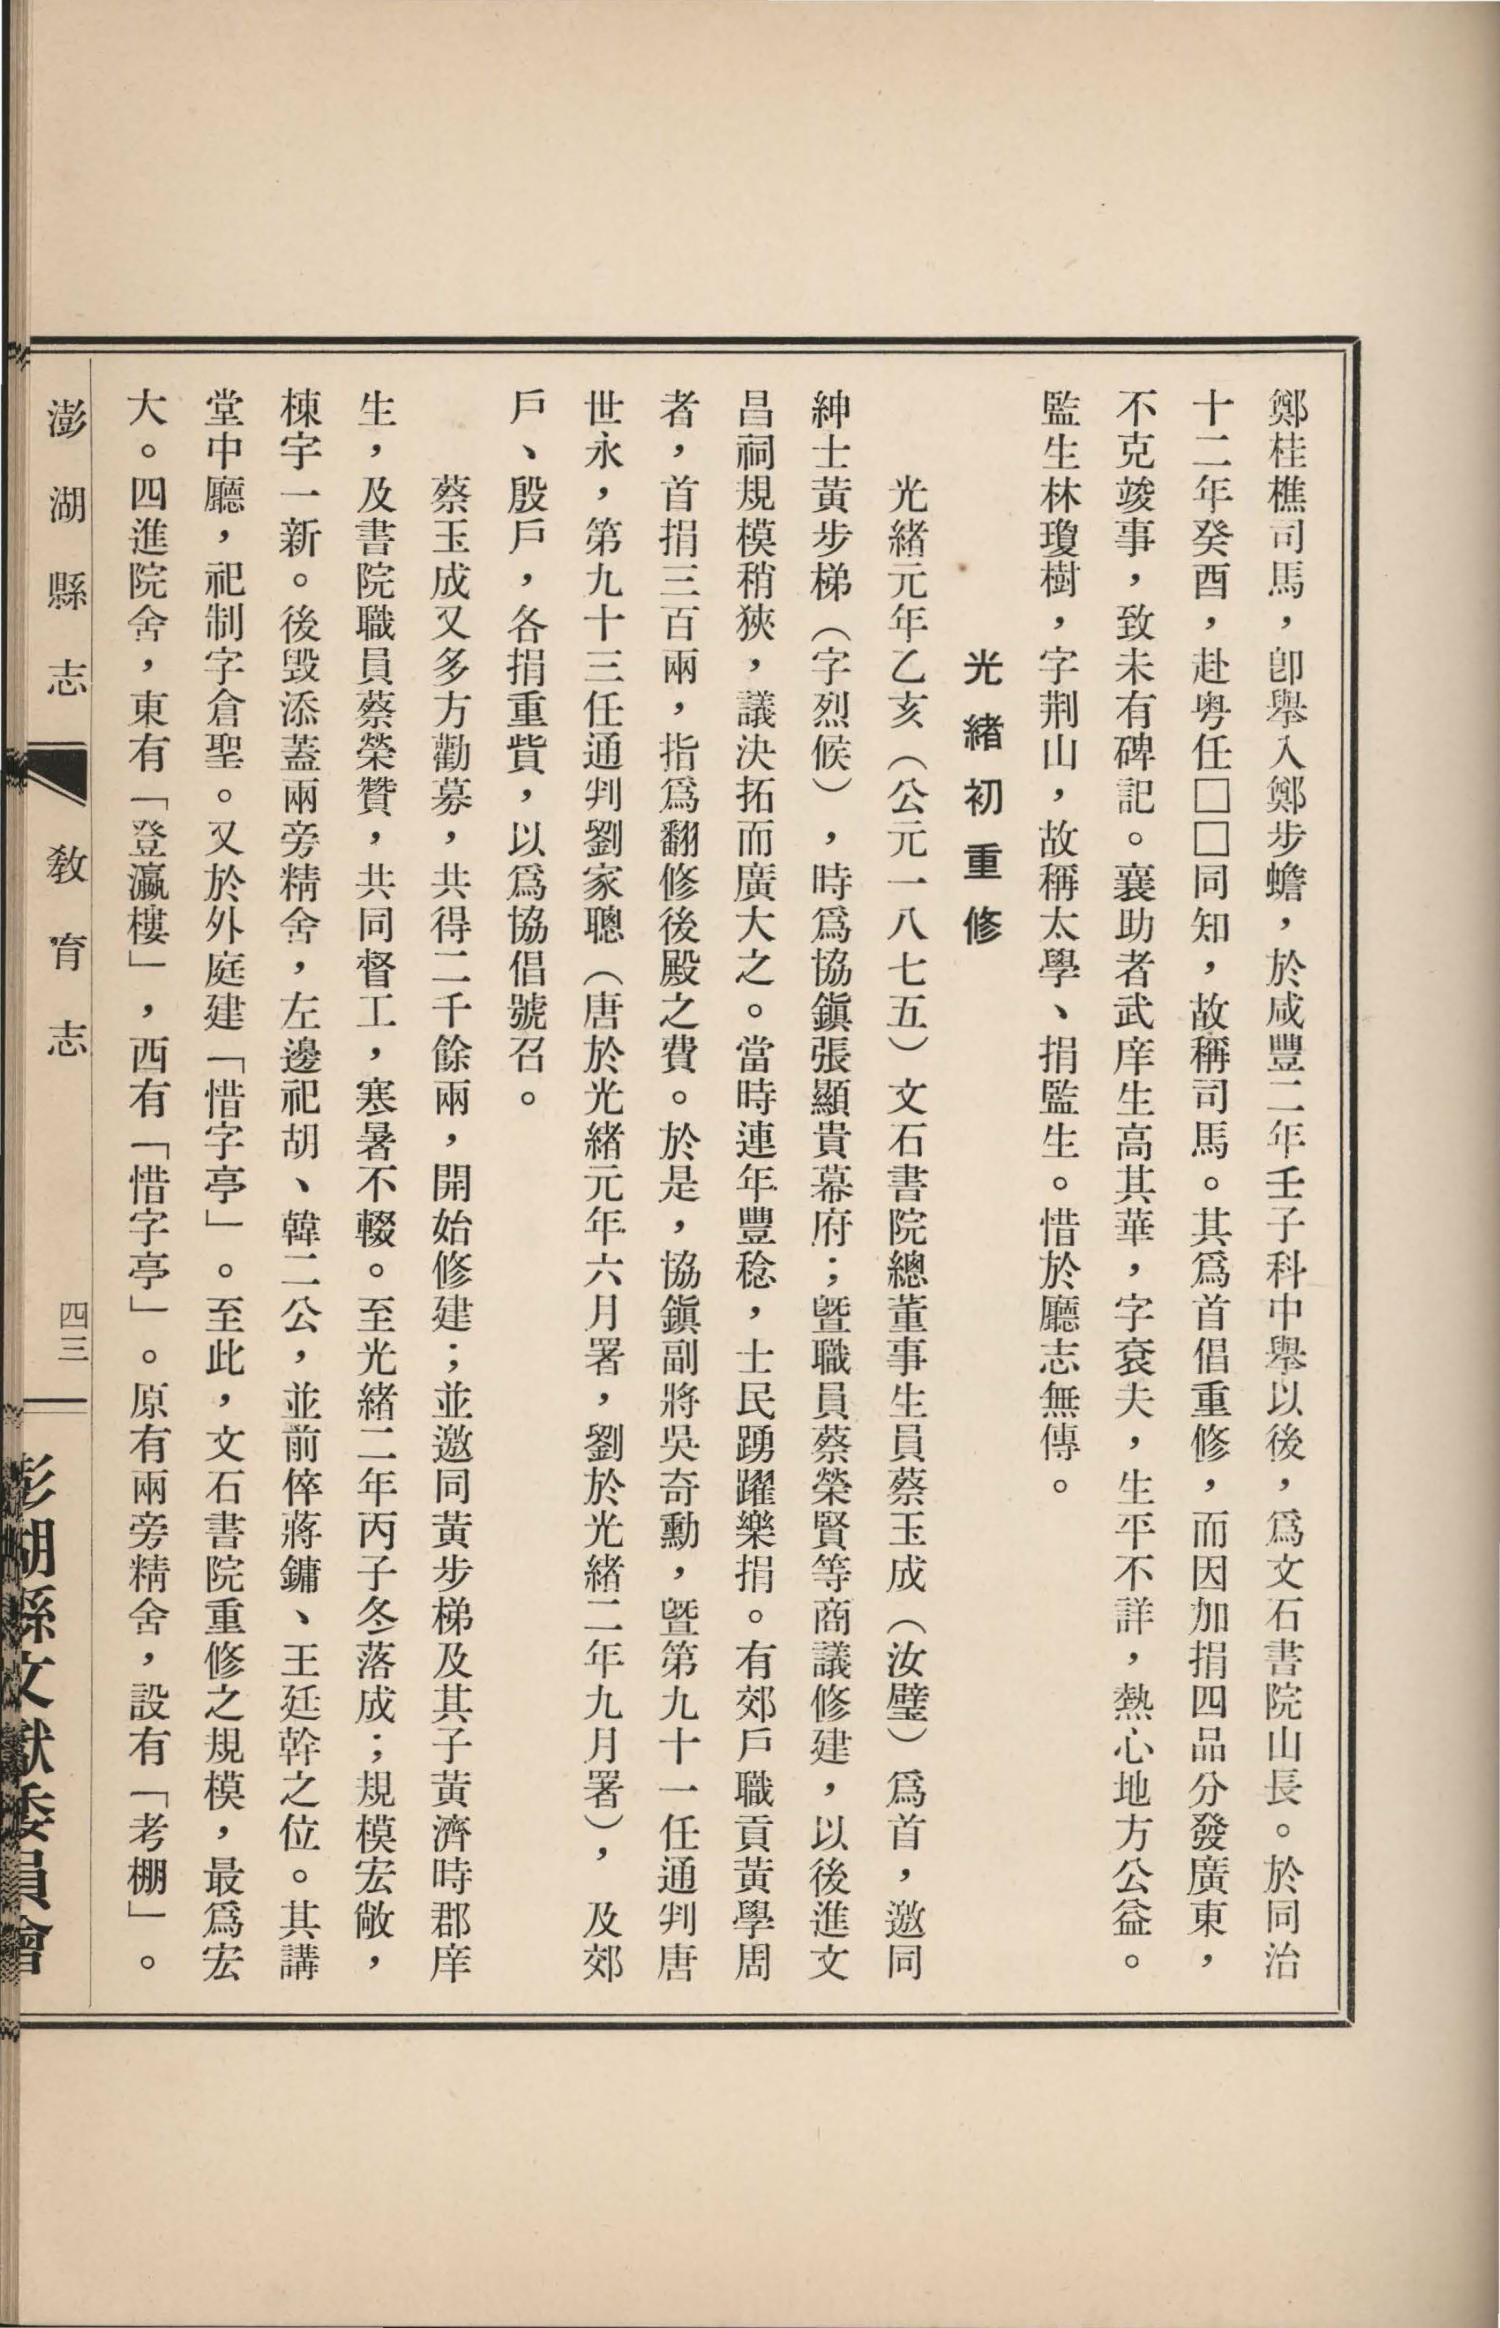 鄭桂樵司馬，卽舉人鄭步蟾，於咸豐二年壬子科中舉以後，爲文石書院山長。於同治
十二年癸酉，赴粵任□□同知，故稱司馬。其爲首倡重修，而因加捐四品分發廣東，
不克竣事，致未有碑記。襄助者武庠生高其華，字袞夫，生平不詳，熱心地方公益。
監生林瓊樹，字荆山，故稱太學、捐監生。惜於廳志無傳。
光緒初重修
光緒元年乙亥（公元一八七五）文石書院總董事生員蔡玉成（汝璧）爲首，邀同
紳士黃步梯（字烈候），時爲協鎭張顯貴幕府；曁職員蔡榮賢等商議修建，以後進文
昌祠規模稍狹，議決拓而廣大之。當時連年豐稔，士民踴躍樂捐。有郊戶職貢黃學周
者，首捐三百兩，指爲翻修後殿之費。於是，協鎭副將吳奇勳，曁第九十一任通判唐
世永，第九十三任通判劉家聰（唐於光緒元年六月署，劉於光緒二年九月署），及郊
戶、殷戶，各捐重貲，以爲協倡號召。
蔡玉成又多方勸募，共得二千餘兩，開始修建；並邀同黃步梯及其子黃濟時郡庠
生，及書院職員蔡榮贊，共同督工，寒暑不輟。至光緒二年丙子冬落成；規模宏敞，
棟宇一新。後毀添蓋兩旁精舍，左邊祀胡、韓二公，並前倅蔣鏞、王廷幹之位。其講
堂中廳，祀制字倉聖。又於外庭建「惜字亭」。至此，文石書院重修之規模，最爲宏
大。四進院舍，東有「登瀛樓」，西有「惜字亭」。原有兩旁精舍，設有「考棚」。
澎湖縣志 教育志 四三
澎湖縣文獻委員會